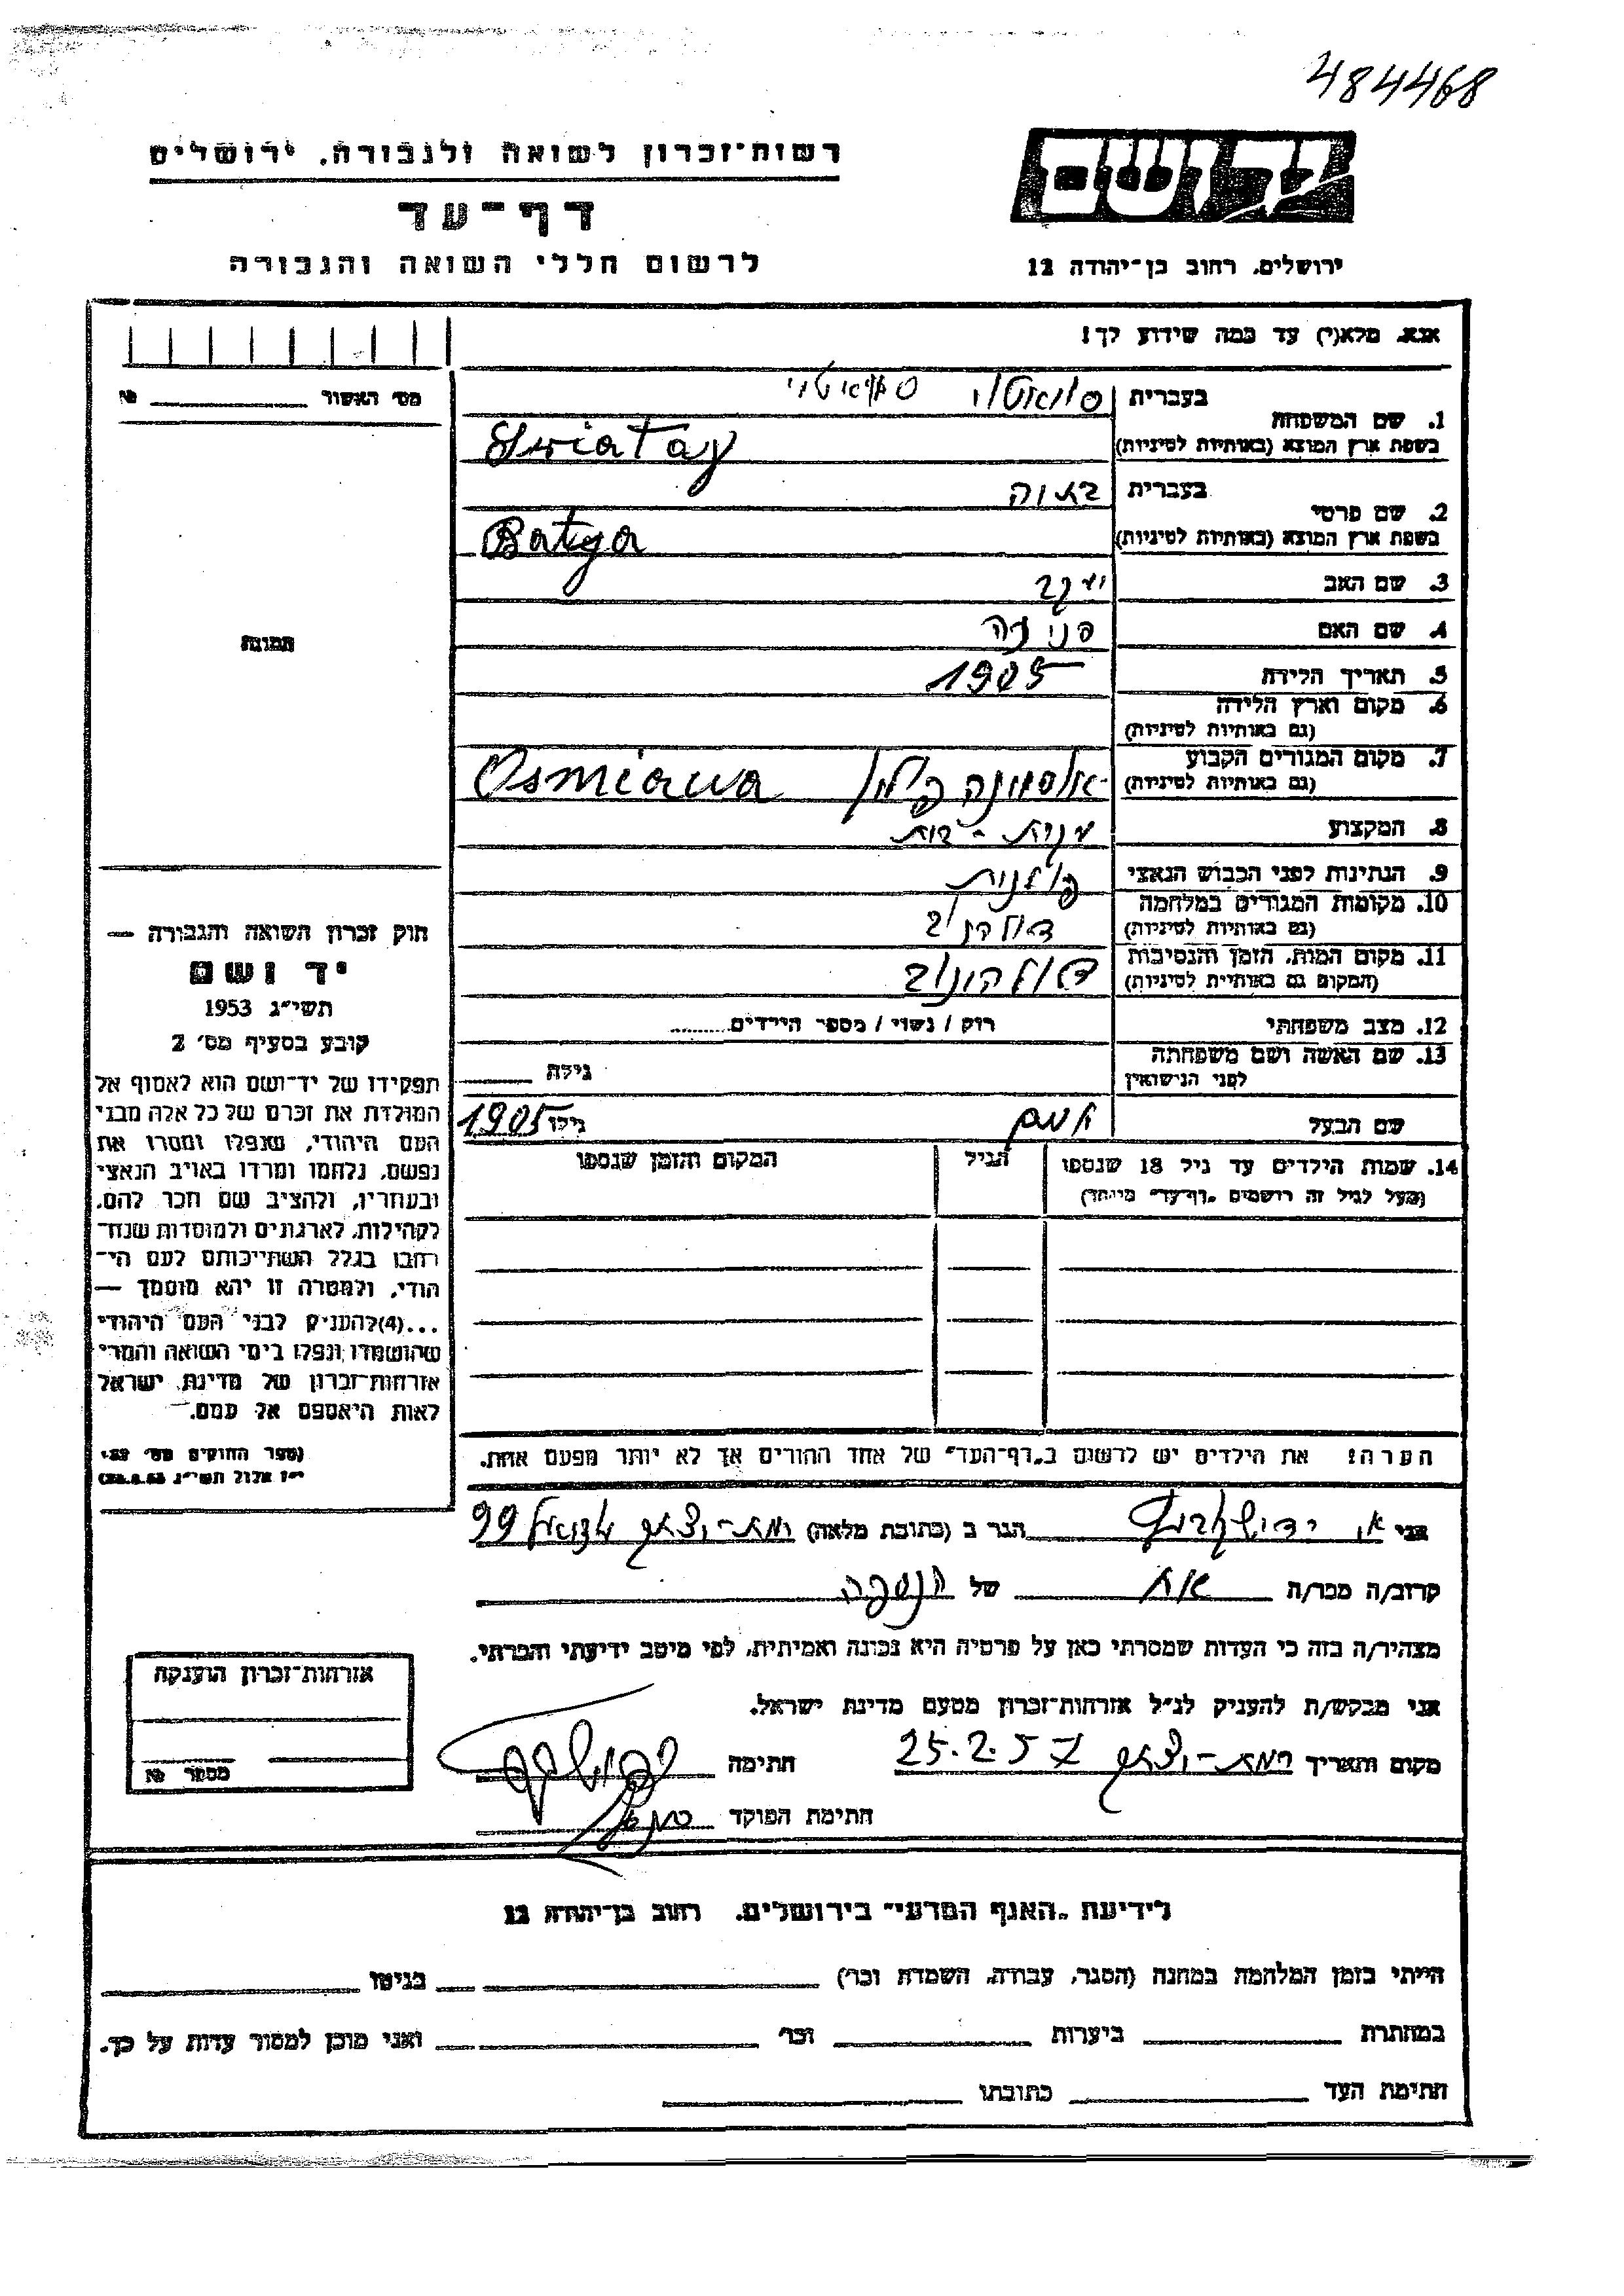 484468
רשות־זכרון לשואה ולגבורה, ירושלים
דף־עד
לרשום חללי השואה והגבורה
יד ושם
ירושלים, רחוב בן־יהודה 12
אנא, מלא(י) עד כמה שידוע לך!
מס׳ האשור № 
1. שם המשפחה בעברית
בשפת ארץ המוצא (באותיות לטיניות) Swiatay
2. שם פרטי בעברית בתיה
בשפת ארץ המוצא (באותיות לטיניות) Batya
3. שם האב יעקב
4. שם האם
5. תאריך הלידה 1905
6. מקום וארץ הלידה
(גם באותיות לטיניות)
7. מקום המגורים הקבוע Osmiawa
(גם באותיות לטיניות)
8. המקצוע עקרת-בית
9. הנתינות לפני הכבוש הנאצי פולנית
10. מקומות המגורים במלחמה
(גם באותיות לטיניות)
11. מקום המות, הזמן והנסיבות
(המקום גם באותיות לטיניות)
12. מצב משפחתי רוק / נשוי / מספר הילדים
13. שם האשה ושם משפחתה גילה
לפני הנישואין
שם הבעל גילו 1905
14. שמות הילדים עד גיל 18 שנספו הגיל המקום והזמן שנספו
(מעל לגיל זה רושמים „דף־עד״ מיוחד)
הערה: את הילדים יש לרשום ב„דף־העד״ של אחד ההורים אך לא יותר מפעם אחת.
תמונה
חוק זכרון השואה והגבורה —
יד ושם
תשי״ג 1953
קובע בסעיף מס׳ 2
תפקידו של יד־ושם הוא לאסוף אל
המולדת את זכרם של כל אלה מבני
העם היהודי, שנפלו ומסרו את
נפשם, נלחמו ומרדו באויב הנאצי
ובעוזריו, ולהציב שם וזכר להם,
לקהילות, לארגונים ולמוסדות שנח־
רבו בגלל השתייכותם לעם הי־
הודי, ולמטרה זו יהא מוסמך —
...(4) להעניק לבני העם היהודי
שהושמדו ונפלו בימי השואה והמרי
אזרחות־זכרון של מדינת ישראל
לאות היאספם אל עמם.
(ספר החוקים מס׳ 132
י״ז אלול תשי״ג 28.8.53)
אני הגר ב (כתובת מלאה) רמת-יצחק 99
קרוב/ה מכר/ה אחות של הנספה
מצהיר/ה בזה כי העדות שמסרתי כאן על פרטיה היא נכונה ואמיתית, לפי מיטב ידיעתי והכרתי.
אני מבקש/ת להעניק לנ״ל אזרחות־זכרון מטעם מדינת ישראל.
מקום ותאריך רמת-יצחק 25.2.57 חתימה
חתימת הפוקד
אזרחות־זכרון הוענקה
מספר №
לידיעת „האגף המדעי״ בירושלים, רחוב בן־יהודה 12
הייתי בזמן המלחמה במחנה (הסגר, עבודה, השמדה וכו׳) בגיטו
במחתרת ביערות וכו׳ ואני מוכן למסור עדות על כך.
חתימת העד כתובתו